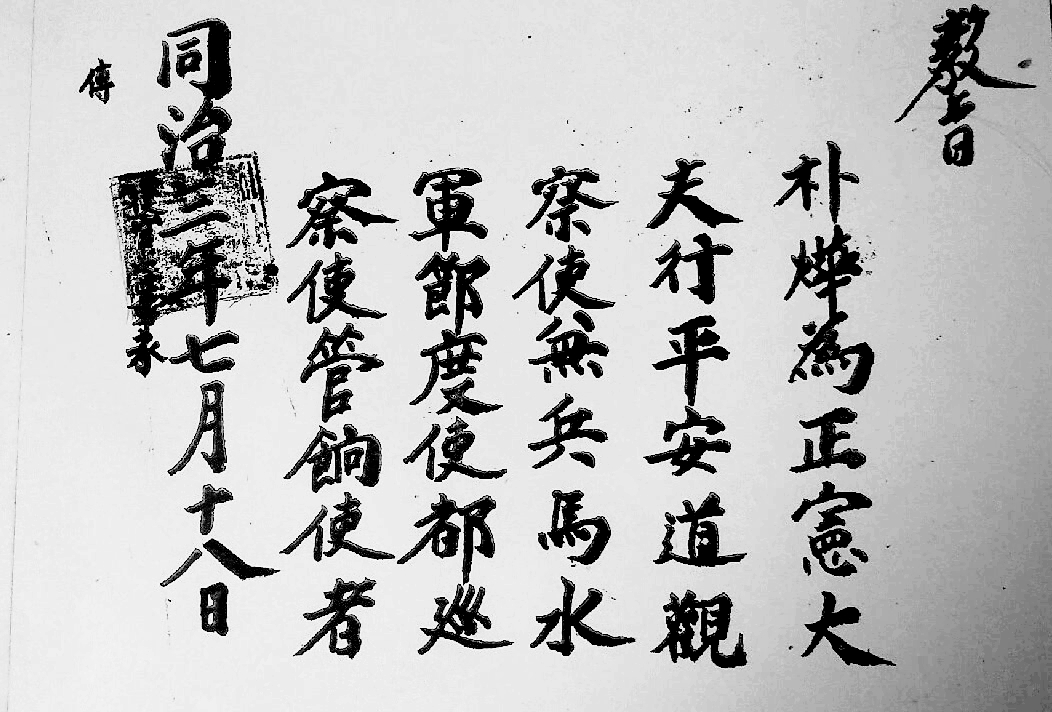 敎旨
朴燁為正憲大
夫行平安道觀
察使兼兵馬水
軍節度使都巡
察使管餉使者
同治三年七月十八日
傳
承